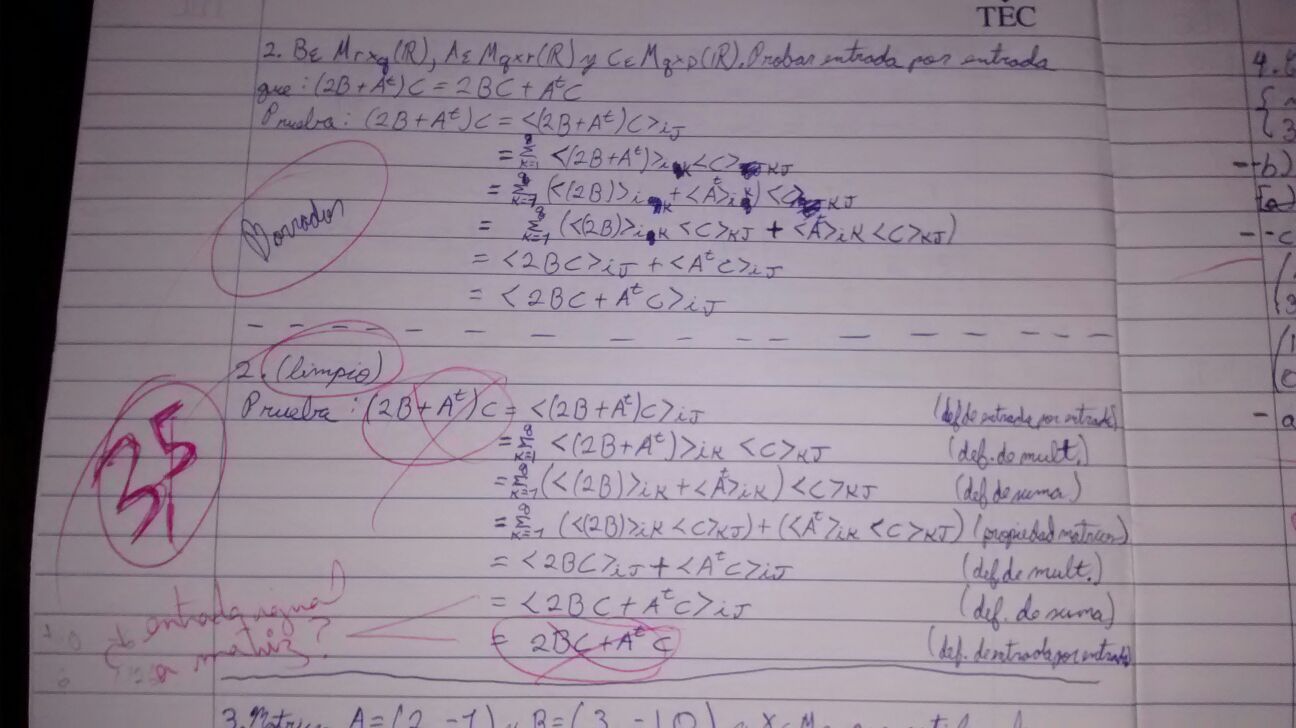 TEC
2. Bε Mrxq(R), Aε Mqxr(R) y Cε Mqxp(R). Probar entrada por entrada
que: (2B + Aᵗ)C = 2BC + AᵗC
Prueba: (2B + Aᵗ)C = <(2B + Aᵗ)C>iJ
= Σ <(2B + Aᵗ)>iK <C>KJ
= Σ (<(2B)>iK + <Aᵗ>iK) <C>KJ
= Σ (<(2B)>iK <C>KJ + <Aᵗ>iK <C>KJ)
Borrador
= <2BC>iJ + <AᵗC>iJ
= <2BC + AᵗC>iJ
2. (limpio)
Prueba: (2B + Aᵗ)C = <(2B + Aᵗ)C>iJ (def de entrada por entrada)
= Σ <(2B + Aᵗ)>iK <C>KJ (def. de mult.)
= Σ (<(2B)>iK + <Aᵗ>iK) <C>KJ (def de suma)
= Σ (<(2B)>iK <C>KJ) + (<Aᵗ>iK <C>KJ) (propiedad matrices)
= <2BC>iJ + <AᵗC>iJ (def de mult.)
= <2BC + AᵗC>iJ (def. de suma)
= 2BC + AᵗC (def. de entrada por entrada)
entrada igual
a matriz?
4.
--b)
--c
- a